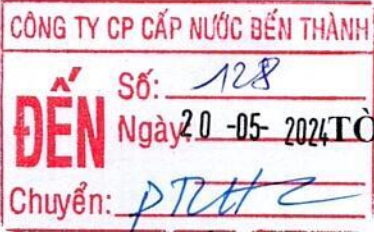 CÔNG TY CP CẤP NƯỚC BẾN THÀNH
ĐẾN
Số: 128
Ngày: 20 -05- 2024 TÒ
Chuyển: